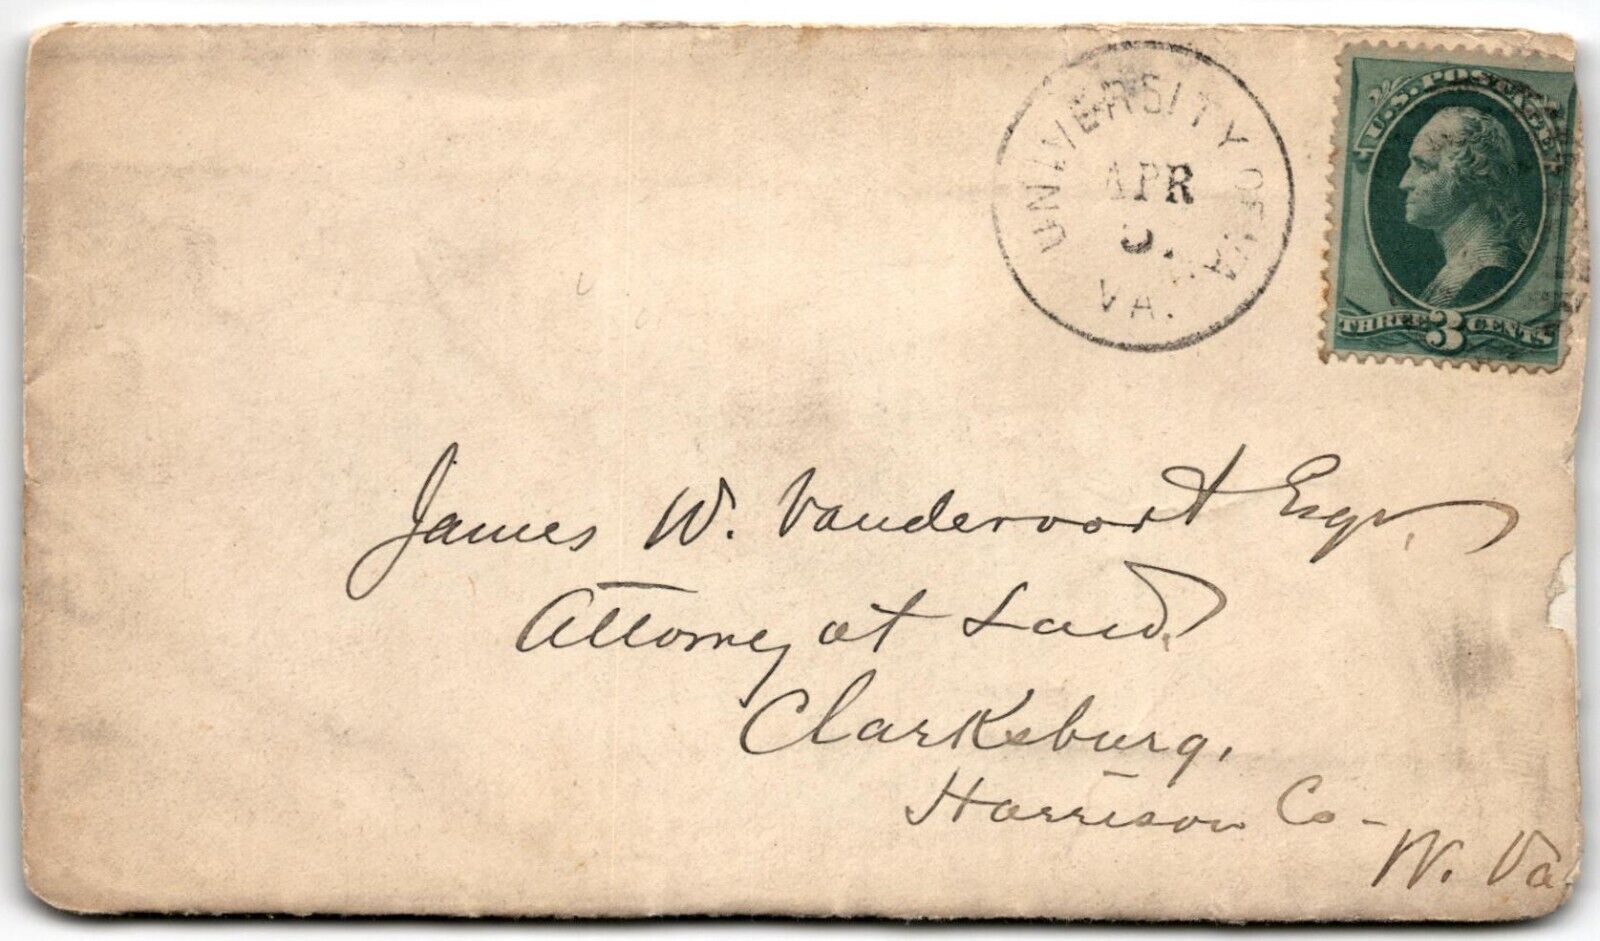 UNIVERSITY OF VA.
APR
5.
VA.
U.S. POSTAGE
THREE 3 CENTS
James W. Vandervort Esqr.
Attorney at Law.
Clarksburg,
Harrison Co-
W. Va